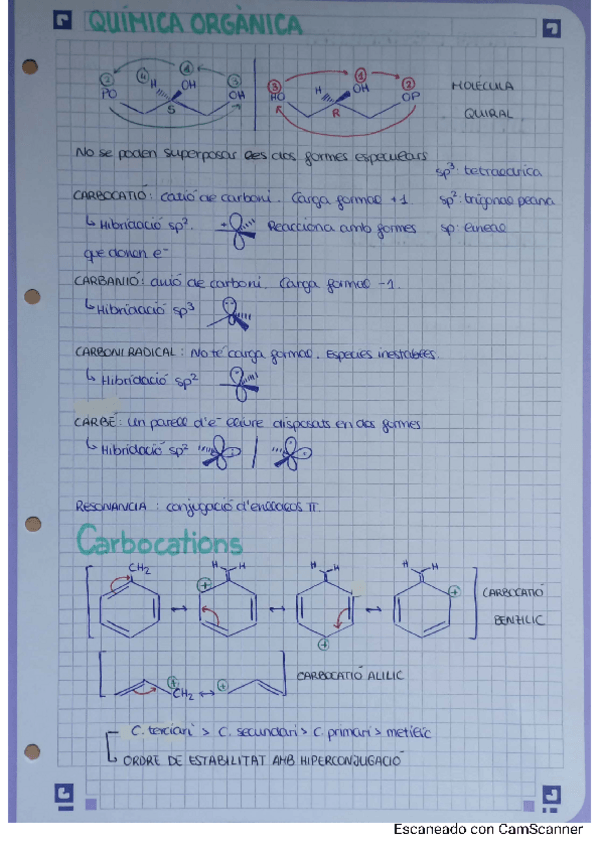 QUÍMICA ORGÀNICA
② ④ ① ③ ③ ① ②
PO H OH OH HO H OH OP
S R R
MOLÈCULA
QUIRAL
No se poden superposar les dos formes especulars
sp³: tetraedrica
CARBOCATIÓ: catió de carboni. Carga formal +1
sp²: trigonal plana
↳ Hibridació sp². + Reacciona amb formes
sp: lineal
que donen e⁻
CARBANIÓ: anió de carboni. Carga formal -1.
↳ Hibridació sp³
CARBONI RADICAL: No té carga formal. Espècies inestables.
↳ Hibridació sp²
CARBÉ: un parell d'e⁻ lliure disposats en dos formes
↳ Hibridació sp² |
RESONANCIA: conjugació d'enllaços π.
Carbocations
CH₂ H H H H H H
⊕ ⊕ ⊕
↔ ↔ ↔
CARBOCATIÓ
BENZILIC
⊕ CH₂ ↔ ⊕
CARBOCATIÓ ALILIC
C. terciari > C. secundari > C. primari > metilic
↳ ORDRE DE ESTABILITAT AMB HIPERCONJUGACIÓ
Escaneado con CamScanner